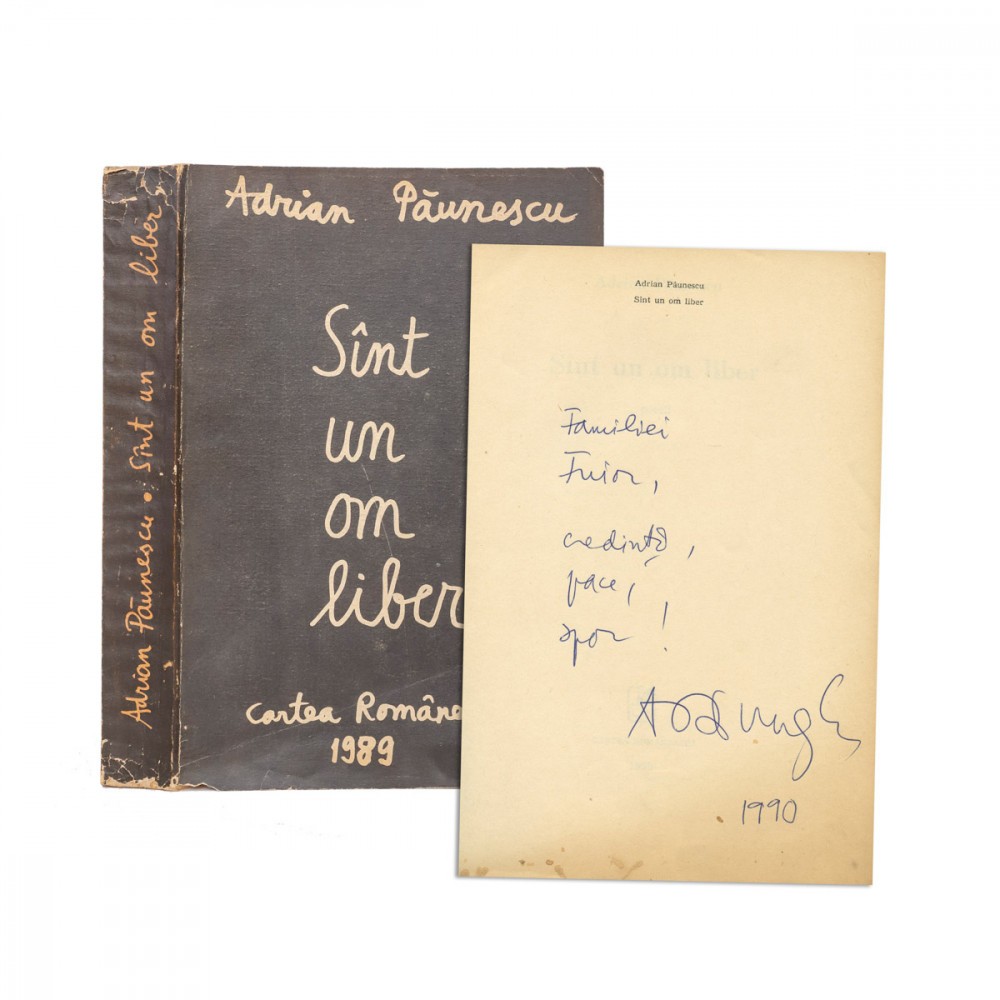 Adrian Păunescu • Sînt un om liber
Adrian Păunescu
Sînt
un
om
liber
Cartea Române
1989
Adrian Păunescu
Sînt un om liber
Sînt un om liber
Familiei
Fuior,
credință,
pace,
spor!
1990